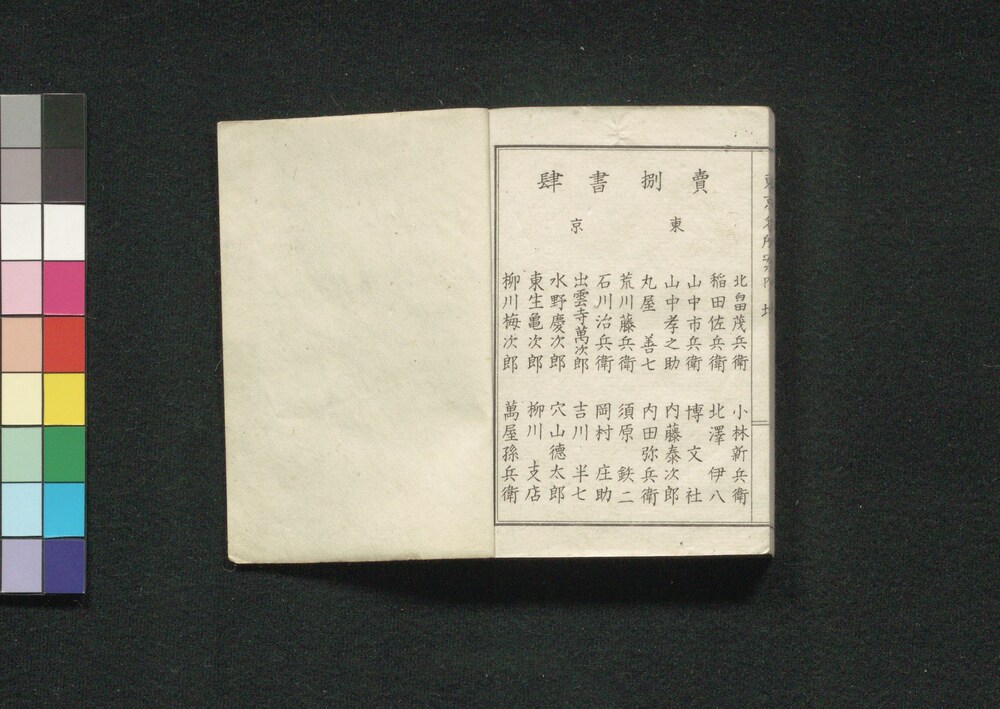 賣捌書肆
東京
北畠茂兵衛
稲田佐兵衛
山中市兵衛
山中孝之助
丸屋善七
荒川藤兵衛
石川治兵衛
出雲寺萬次郎
水野慶次郎
東生亀次郎
柳川梅次郎
小林新兵衛
北澤伊八
博文社
内藤泰次郎
内田弥兵衛
須原鉄二
岡村庄助
吉川半七
穴山德太郎
柳川支店
萬屋孫兵衛